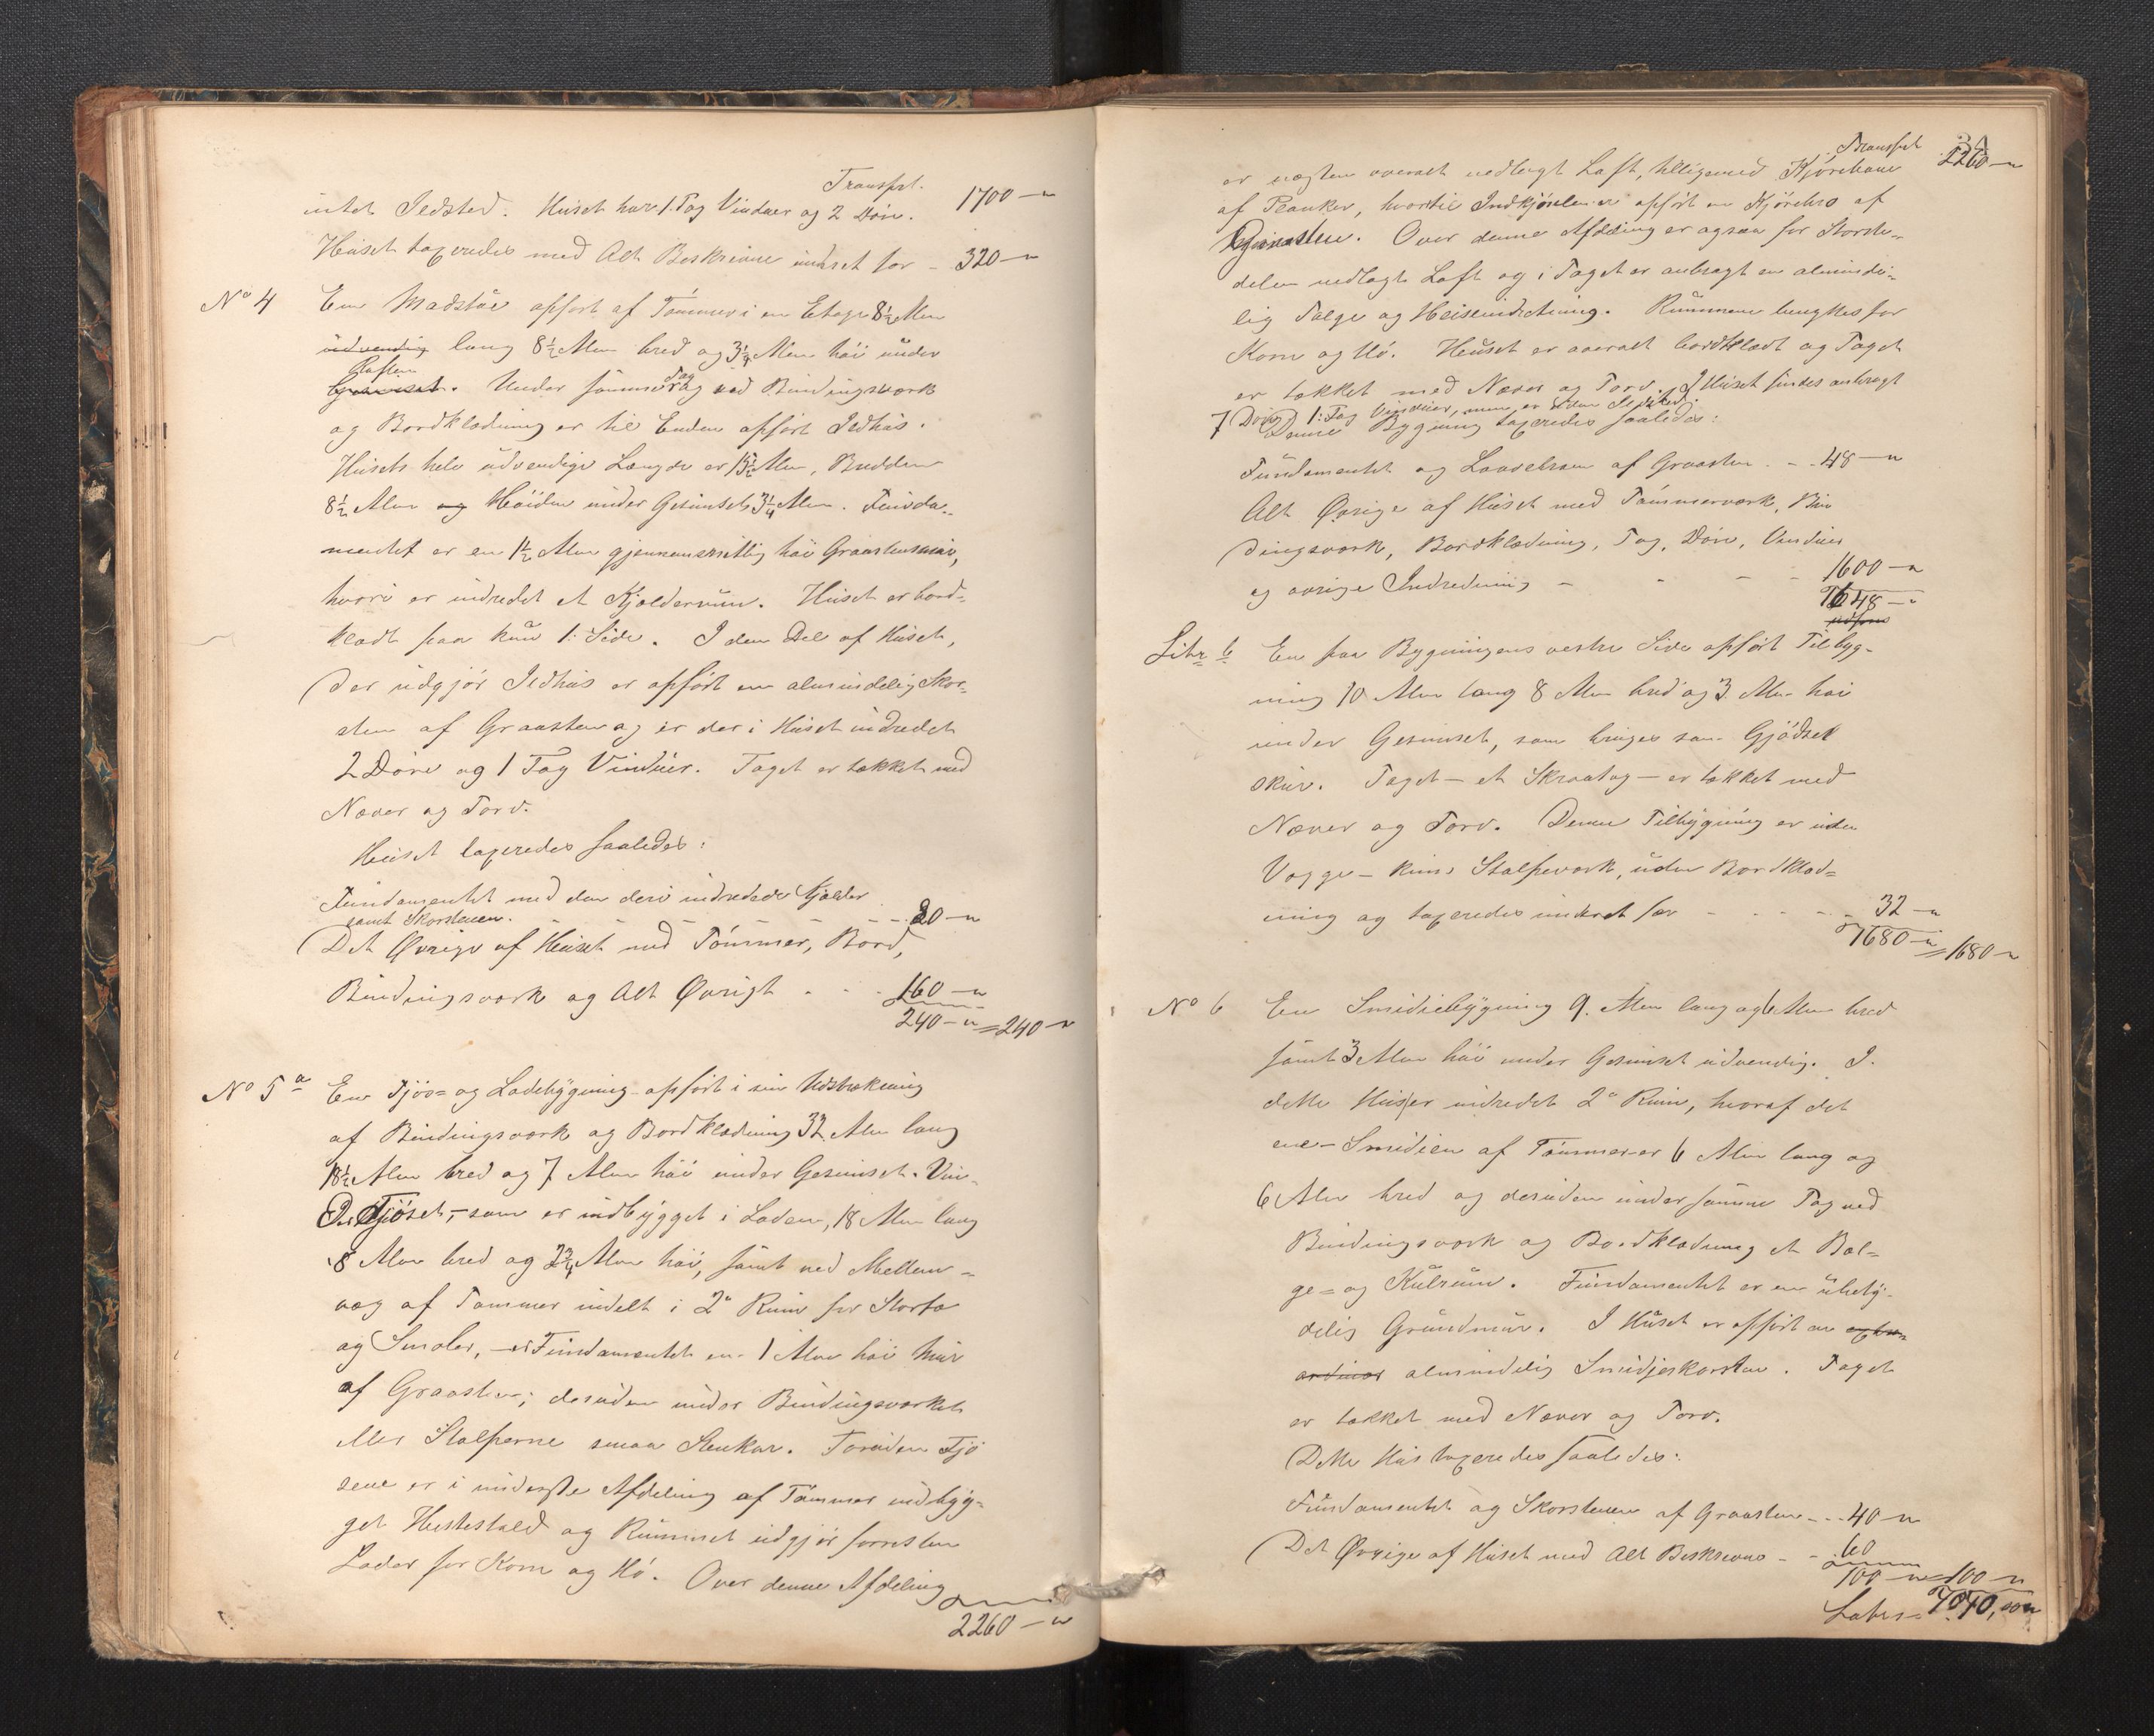 Transprt. 1700 — "
intet Ildsted. Huset har 1. Fag Vinduer og 2 Døre.
Huset taxeredes med Alt Beskrevne under et for - 320 — "
No 4 En Madstue opført af Tømmer i en Etage 8½ Alen
udvendig lang 8½ Alen bred og 3¼ Alen høi under
Raften
Gesimset. Under samme Tag ved Bindingsværk
og Bordklædning er til Enden opført Ildhus.
Husets hele udvendige Længde er 15½ Alen, Bredden
8½ Alen og Høiden under Gesimset 3¼ Alen. Funda-
mentet er en 1½ Alen gjennemsnitlig høi Graastensmur,
hvori er indredet et Kjælderrum. Huset er bord-
klædt paa kun 1. Side. I den Del af Huset,
der udgjør Ildhus er opført en almindelig Skor-
sten af Graasten og er der i Huset indredet
2 Døre og 1 Fag Vinduer. Taget er tækket med
Næver og Torv.
Huset taxeredes saaledes:
Fundamentet med den deri indredede Kjælder
samt Skorstenen. - - - - - 80 — "
Det Øvrige af Huset med Tømmer, Bord,
Bindingsværk og Alt Øvrigt - - - 160 — "
240 — " = 240 — "
No 5 a En Fjøs- og Ladebygning opført i sin Udstrækning
af Bindingsværk og Bordklædning 32 Alen lang
18½ Alen bred og 7 Alen høi under Gesimset.
Fjøset, - som er indbygget i Laden, 18 Alen lang
8 Alen bred og 2¾ Alen høi, samt ved Mellem-
væg af Tømmer indelt i 2de Rum for Storfæ
og Smaler, - er Fundamentet en 1 Alen høi Mur
af Graasten; desuden under Bindingsværket
eller Stolperne smaa Stenkar. Foruden Fjø
sene er i underste Afdeling af Tømmer indbyg-
get Hestestald og Rummet udgjør forresten
Lader for Korn og Hø. Over denne Afdeling
2260 — "
34
Transprt 2260 — "
er næsten overalt nedlagt Loft, tilligemed Kjørebane
af Planker, hvortil Indkjørselen er opført en Kjørebro af
Graasten. Over denne Afdeling er ogsaa for Største-
delen nedlagt Loft og i Taget er anbragt en alminde-
lig Talge og Heiseindretning. Rummene benyttes for
Korn og Hø. Huset er overalt bordklædt og Taget
er tækket med Næver og Torv. I Huset findes anbragt
7 Døre, 1. Fag Vinduer, men er uden Ildsted.
Denne Bygning taxeredes saaledes:
Fundamentet og Laavebroen af Graasten - - 48 — "
Alt Øvrige af Huset med Tømmerværk, Bin
dingsværk, Bordklædning, Tag, Døre, Vinduer
og øvrige Indredning - - - - 1600 — "
1648 — "
Litr b En paa Bygningens vestre Side opført Tilbyg-
ning 10 Alen lang 8 Alen bred og 3 Alen høi
under Gesimset, som bruges som Gjødsel
skur. Taget — et Skraatag — er tækket med
Næver og Torv. Denne Tilbygning er uden
Vægge - kuns Stolpeværk, uden Bordklæd-
ning og taxeredes under et for - - - - 32 — "
1680 — " = 1680 — "
No 6 En Smidiebygning 9. Alen lang og 6 Alen bred
samt 3 Alen høi under Gesimset udvendig. I
dette Hus er indredet 2de Rum, hvoraf det
ene - Smidien af Tømmer - er 6 Alen lang og
6 Alen bred og desuden under samme Tag ved
Bindingsværk og Bordklædning et Bæl-
ge- og Kulrum. Fundamentet er en ubety-
delig Grundmur. I Huset er opført en extra-
ordinær almindelig Smidjeskorsten. Taget
er tækket med Næver og Torv.
Dette Hus taxeredes saaledes:
Fundamentet og Skorstenen af Graasten - - - 40 — "
Det Øvrige af Huset med Alt Beskrevne - - 60
100 — " = 100 — "
Latus - 4040,00 "